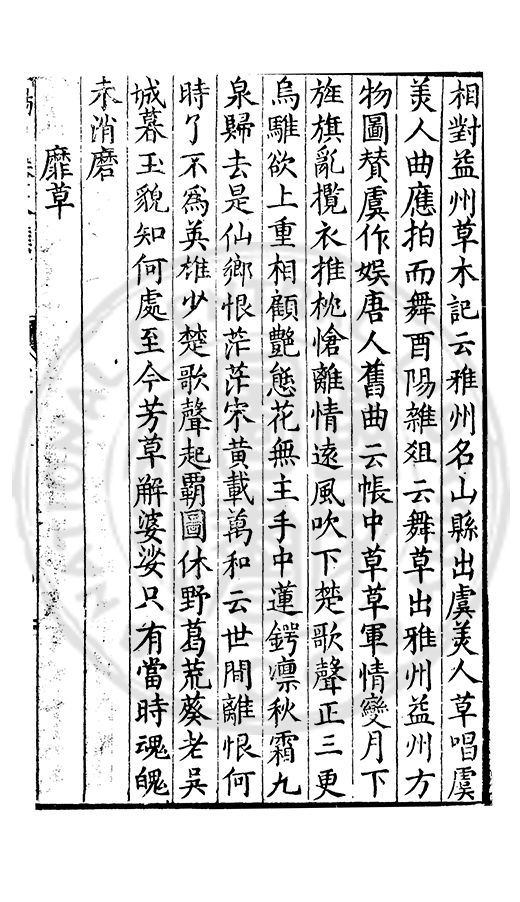 相對益州草木記云雅州名山縣出虞美人草唱虞
美人曲應拍而舞酉陽雜爼云舞草出雅州益州方
物圖贊虞作娱唐人舊曲云帳中草草軍情變月下
旌旗亂攬衣推枕愴離情遠風吹下楚歌聲正三更
烏騅欲上重相顧艶態花無主手中蓮鍔凛秋霜九
泉歸去是仙鄉恨茫茫宋黄載萬和云世間離恨何
時了不為英雄少楚歌聲起覇圖休野葛荒葵老吳
城暮玉貌知何處至今芳草解婆娑只有當時魂魄
未消磨
靡草
NATIONAL